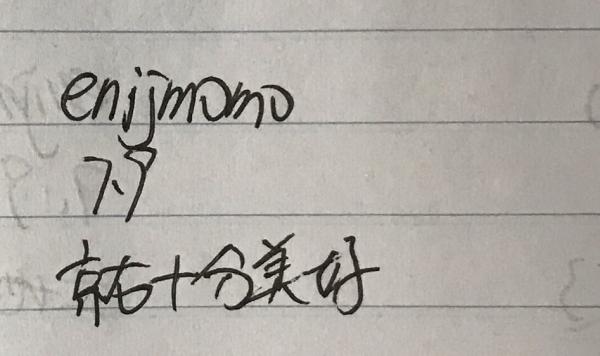 enijmomo
7.9
京右十分美好